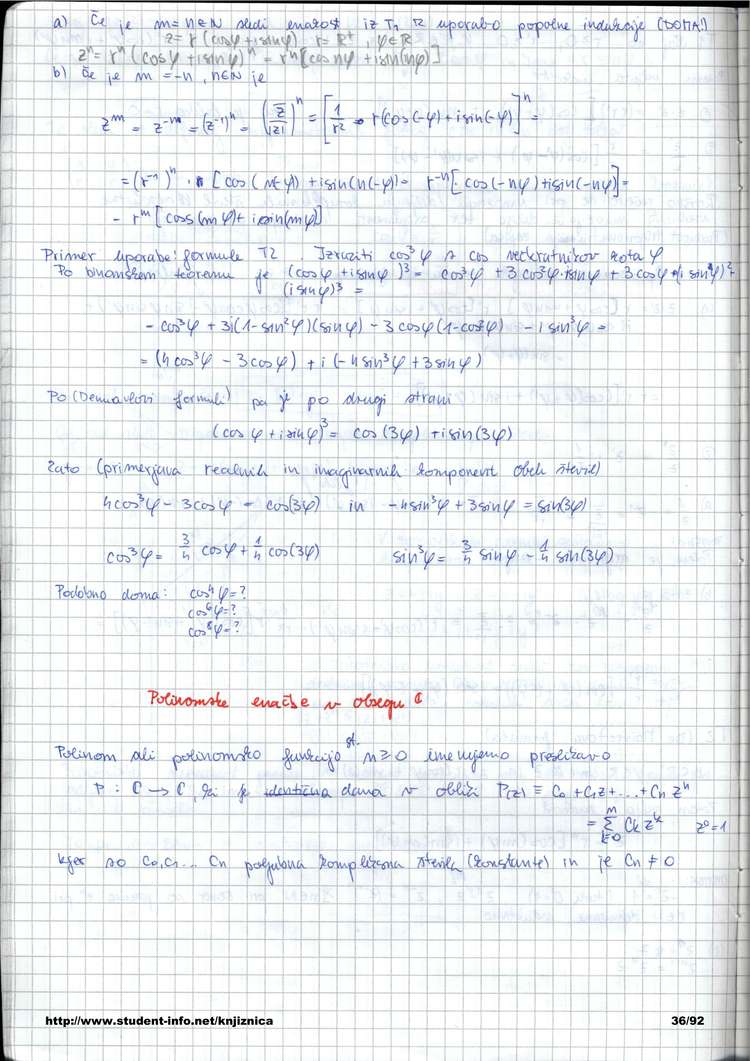 a) Če je m = n ∈ N sledi enakost iz T1, T2 uporabo popolne indukcije (DOMA!)
z = r (cosφ + isinφ) r = R⁺, φ∈R
zⁿ = rⁿ (cosφ + isinφ)ⁿ = rⁿ [cos nφ + isin(nφ)]
b) Če je m = -n, n∈N je
zᵐ = z⁻ᵐ = (z⁻¹)ⁿ = (z̄/|z|)ⁿ = [1/r² · r(cos(-φ) + isin(-φ)]ⁿ =
= (r⁻¹)ⁿ · [cos(n(-φ)) + isin(n(-φ)] = r⁻ⁿ[cos(-nφ) + isin(-nφ)] =
= rᵐ [coss(mφ) + i sin(mφ)]
Primer uporabe: formule T2. Izraziti cos³φ s cos večkratnikov kota φ
Po binomskem teoremu je (cosφ + isinφ)³ = cos³φ + 3cos²φ·isinφ + 3cosφ·(i sinφ)²
(isinφ)³ =
= cos³φ + 3i(1-sin²φ)(sinφ) - 3cosφ(1-cos²φ) - i sin³φ =
= (4cos³φ - 3cosφ) + i(-4sin³φ + 3sinφ)
Po (Demuavlovi formuli) pa je po drugi strani
(cosφ + isinφ)³ = cos(3φ) + isin(3φ)
Zato (primerjava realnih in imaginarnih komponent obeh števil)
4cos³φ - 3cosφ = cos(3φ) in -4sin³φ + 3sinφ = sin(3φ)
cos³φ = 3/4 cosφ + 1/4 cos(3φ) sin³φ = 3/4 sinφ - 1/4 sin(3φ)
Podobno doma: cos⁴φ = ?
cos⁶φ = ?
cos⁸φ = ?
Polinomske enačbe v obsegu ℂ
Polinom ali polinomsko funkcijo st. n ≥ 0 imenujemo preslikavo
P : ℂ → ℂ, ki je identična dana v obliki P(z) ≡ C₀ + C₁z + ... + Cₙ zⁿ
= Σₖ₌₀ⁿ Cₖ zᵏ z⁰ = 1
kjer so C₀, C₁ ... Cₙ poljubna kompleksna števila (konstante) in je Cₙ ≠ 0
http://www.student-info.net/knjiznica 36/92